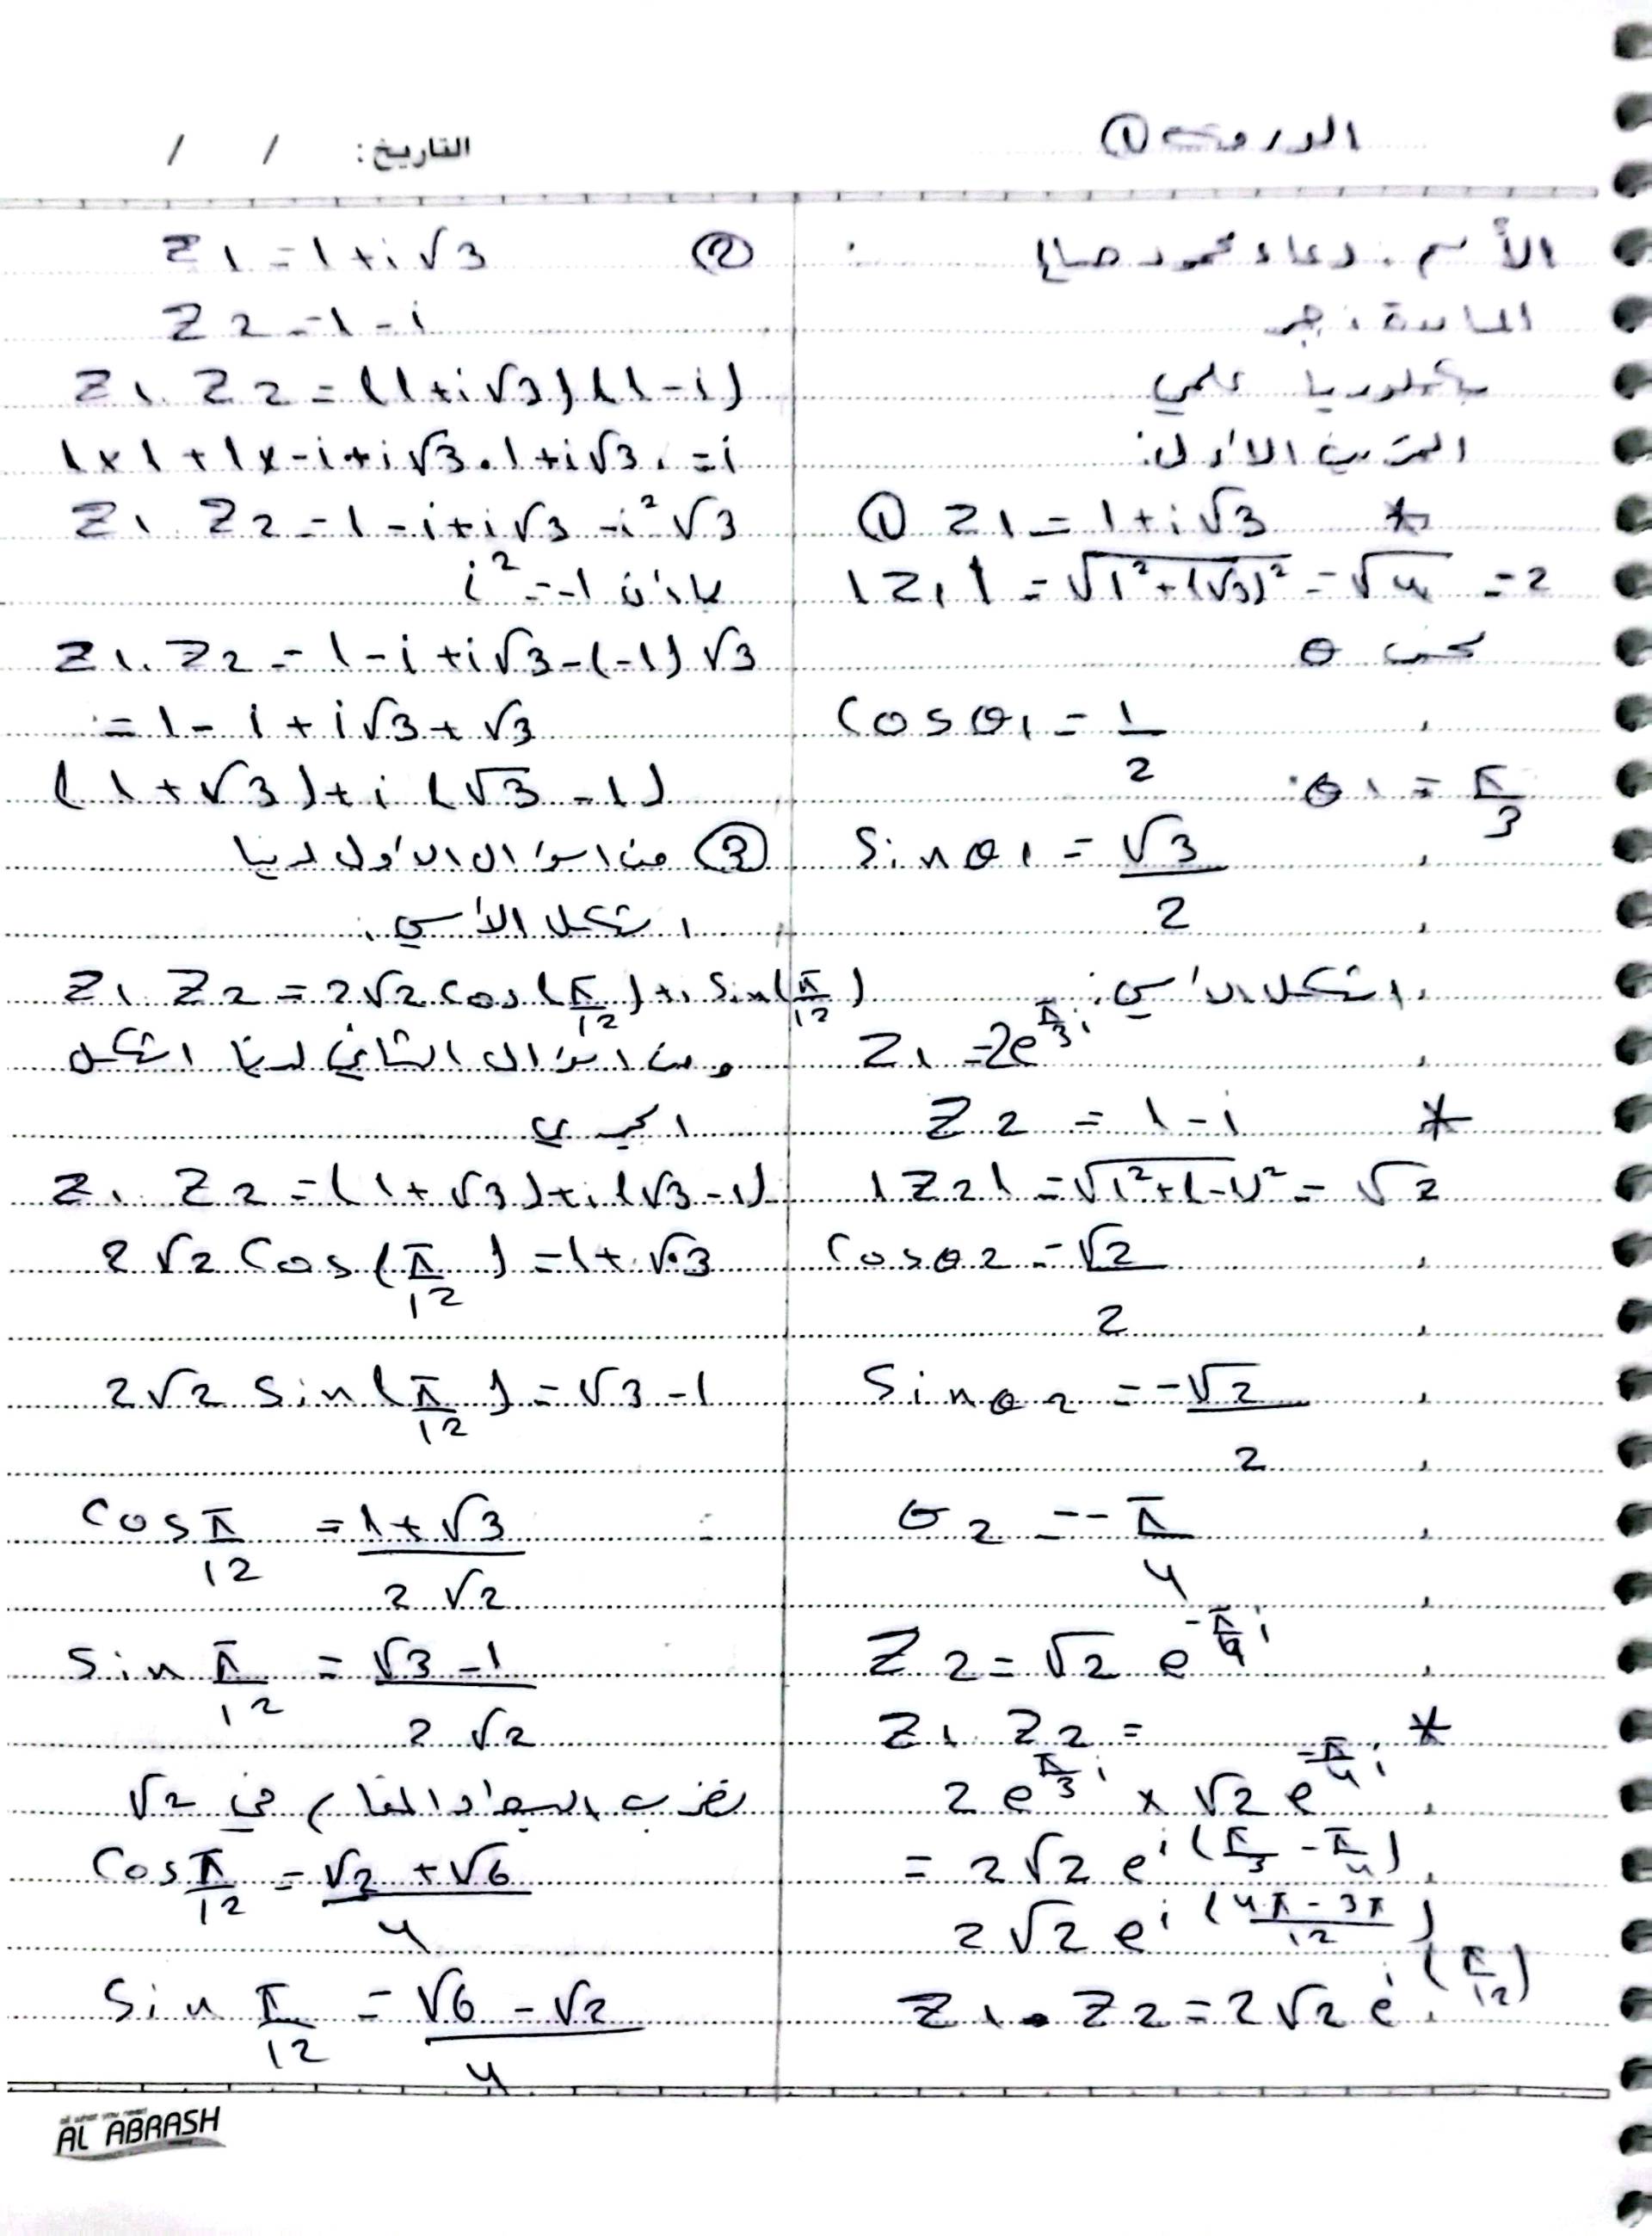 الورقة ①
التاريخ: / /
الأسم : دعاء محمود صالح
المادة : جبر
بكلوريا علمي
التمرين الأول:
① Z1 = 1 + i√3 *
|Z1| = √(1² + (√3)²) = √4 = 2
نحسب θ
Cos θ1 = 1/2
θ1 = π/3
Sin θ1 = √3/2
الشكل الأسي:
Z1 = 2e^(π/3 i)
Z2 = 1 - i *
|Z2| = √(1² + (-1)²) = √2
Cos θ2 = √2/2
Sin θ2 = -√2/2
θ2 = -π/4
Z2 = √2 e^(-π/4 i)
Z1 . Z2 = *
2 e^(π/3 i) × √2 e^(-π/4 i)
= 2√2 e^(i(π/3 - π/4))
2√2 e^(i((4π - 3π)/12))
Z1 . Z2 = 2√2 e^(i(π/12))
② Z1 = 1 + i√3
Z2 = 1 - i
Z1 . Z2 = (1 + i√3)(1 - i)
1×1 + 1×-i + i√3.1 + i√3. -i
Z1 . Z2 = 1 - i + i√3 - i²√3
بما أن i² = -1
Z1 . Z2 = 1 - i + i√3 - (-1)√3
= 1 - i + i√3 + √3
(1 + √3) + i(√3 - 1)
③ من السؤال الأول لدينا
الشكل الأسي:
Z1 . Z2 = 2√2 Cos(π/12) + i Sin(π/12)
ومن السؤال الثاني لدينا الشكل
الجبري
Z1 . Z2 = (1 + √3) + i(√3 - 1)
2√2 Cos(π/12) = 1 + √3
2√2 Sin(π/12) = √3 - 1
Cos π/12 = (1 + √3)/(2√2)
Sin π/12 = (√3 - 1)/(2√2)
نضرب البسط والمقام في √2
Cos π/12 = (√2 + √6)/4
Sin π/12 = (√6 - √2)/4
all what you need
AL ABRASH